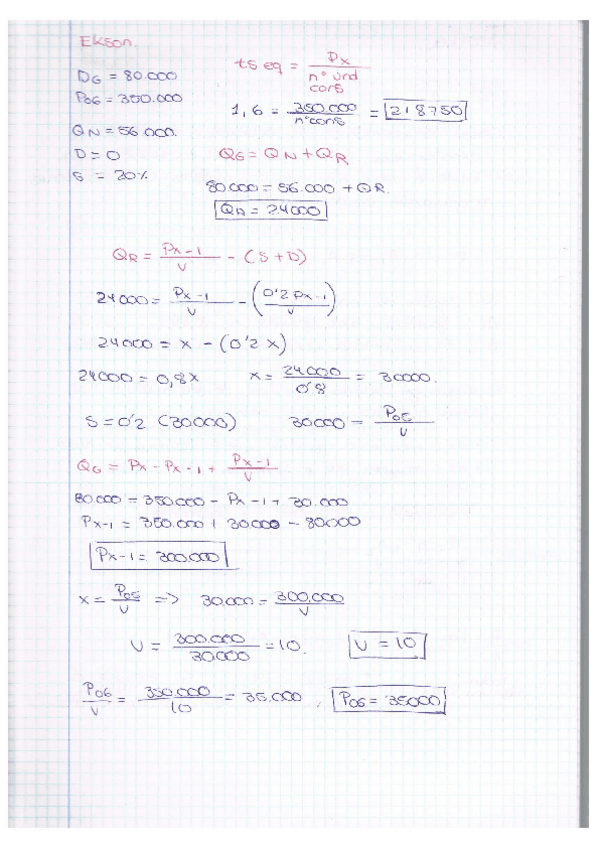 Ekson.
D06 = 80.000
P06 = 350.000
QN = 56.000.
D = 0
S = 20%
ts eq = Px / nº und cons
1,6 = 350.000 / nº cons = 218750
QG = QN + QR
80000 = 56.000 + QR.
QR = 24000
QR = Px-1 / V - (S + D)
24000 = Px-1 / V - (0'2 Px-1 / V)
24000 = x - (0'2 x)
24000 = 0,8x x = 24000 / 0'8 = 30000.
S = 0'2 (30000) 30000 = P05 / V
QG = Px - Px-1 + Px-1 / V
80.000 = 350.000 - Px-1 + 30.000
Px-1 = 350.000 + 30000 - 80000
Px-1 = 300.000
x = P05 / V => 30.000 = 300.000 / V
V = 300.000 / 30000 = 10. V = 10
P06 / V = 350.000 / 10 = 35.000, P06 = 35000